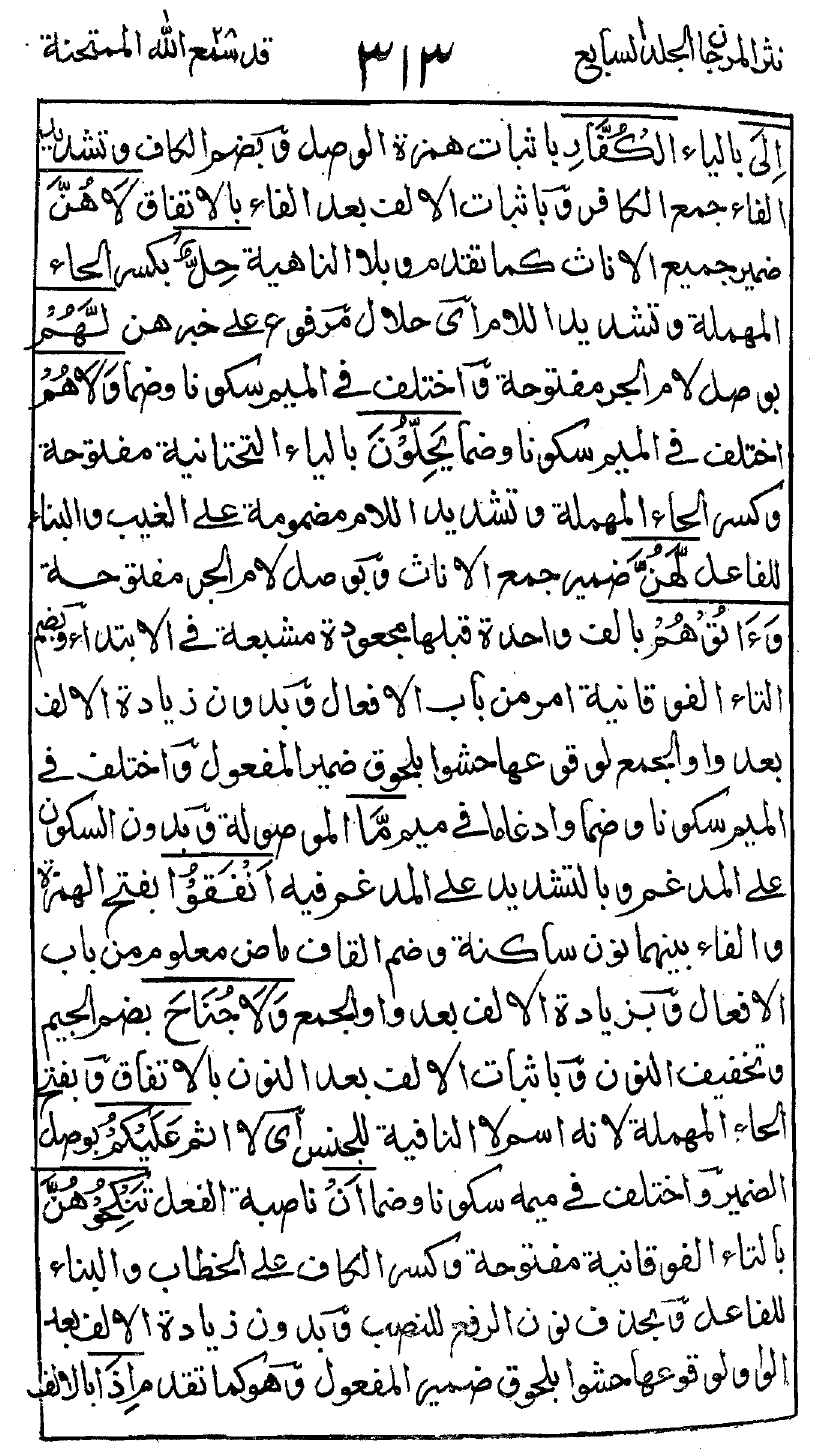 نثر المرجان الجلد السابع
٣١٣
قد سمع الله الممتحنة
اِلَى بالياء الْكُفَّارِ باثبات همزة الوصل وَبضم الكاف وتشديد
الفاء جمع الكافر وَباثبات الالف بعد الفاء بالاتفاق لَا هُنَّ
ضمير جميع الاناث كما تقدم وبلا الناهية حِلٌّ بكسر الحاء
المهملة وتشديد اللام اَى حلال مَرفوع على خبر هن لَّهُمْ
بوصل لام الجر مفتوحة وَاختلف فى الميم سكونا وضما وَلَا هُمْ
اختلف فى الميم سكونا وضما يَحِلُّوْنَ بالياء التحتانية مفتوحة
وكسر الحاء المهملة وتشديد اللام مضمومة على الغيب والبناء
للفاعل لَهُنَّ ضمير جمع الاناث وَبوصل لام الجر مفتوحة
وَءَاتُوْهُمْ بالف واحدة قبلها مجعودة مشبعة فى الابتداء وَبضم
التاء الفوقانية امر من باب الافعال وَبدون زيادة الالف
بعد واو الجمع لوقوعها حشوا بلحوق ضمير المفعول وَاختلف فى
الميم سكونا وضما وادغاما فى ميم مَّا الموصولة وَبدون السكون
على المدغم وبالتشديد على المدغم فيه اَنْفَقُوْا بفتح الهمزة
والفاء بينهما نون ساكنة وضم القاف ماض معلوم من باب
الافعال وَبزيادة الالف بعد واو الجمع وَلَا جُنَاحَ بضم الجيم
وتخفيف النون وَباثبات الالف بعد النون بالاتفاق وَبفتح
الحاء المهملة لانه اسم لا النافية للجنس اَى لا اثم عَلَيْكُمْ بوصل
الضمير وَاختلف فى ميمه سكونا وضما اَنْ ناصبة الفعل تَنْكِحُوْهُنَّ
بالتاء الفوقانية مفتوحة وكسر الكاف على الخطاب والبناء
للفاعل وَبحذف نون الرفع للنصب وَبدون زيادة الالف بعد
الواو لوقوعها حشوا بلحوق ضمير المفعول وَهو كما تقدم اِذَا بالالف